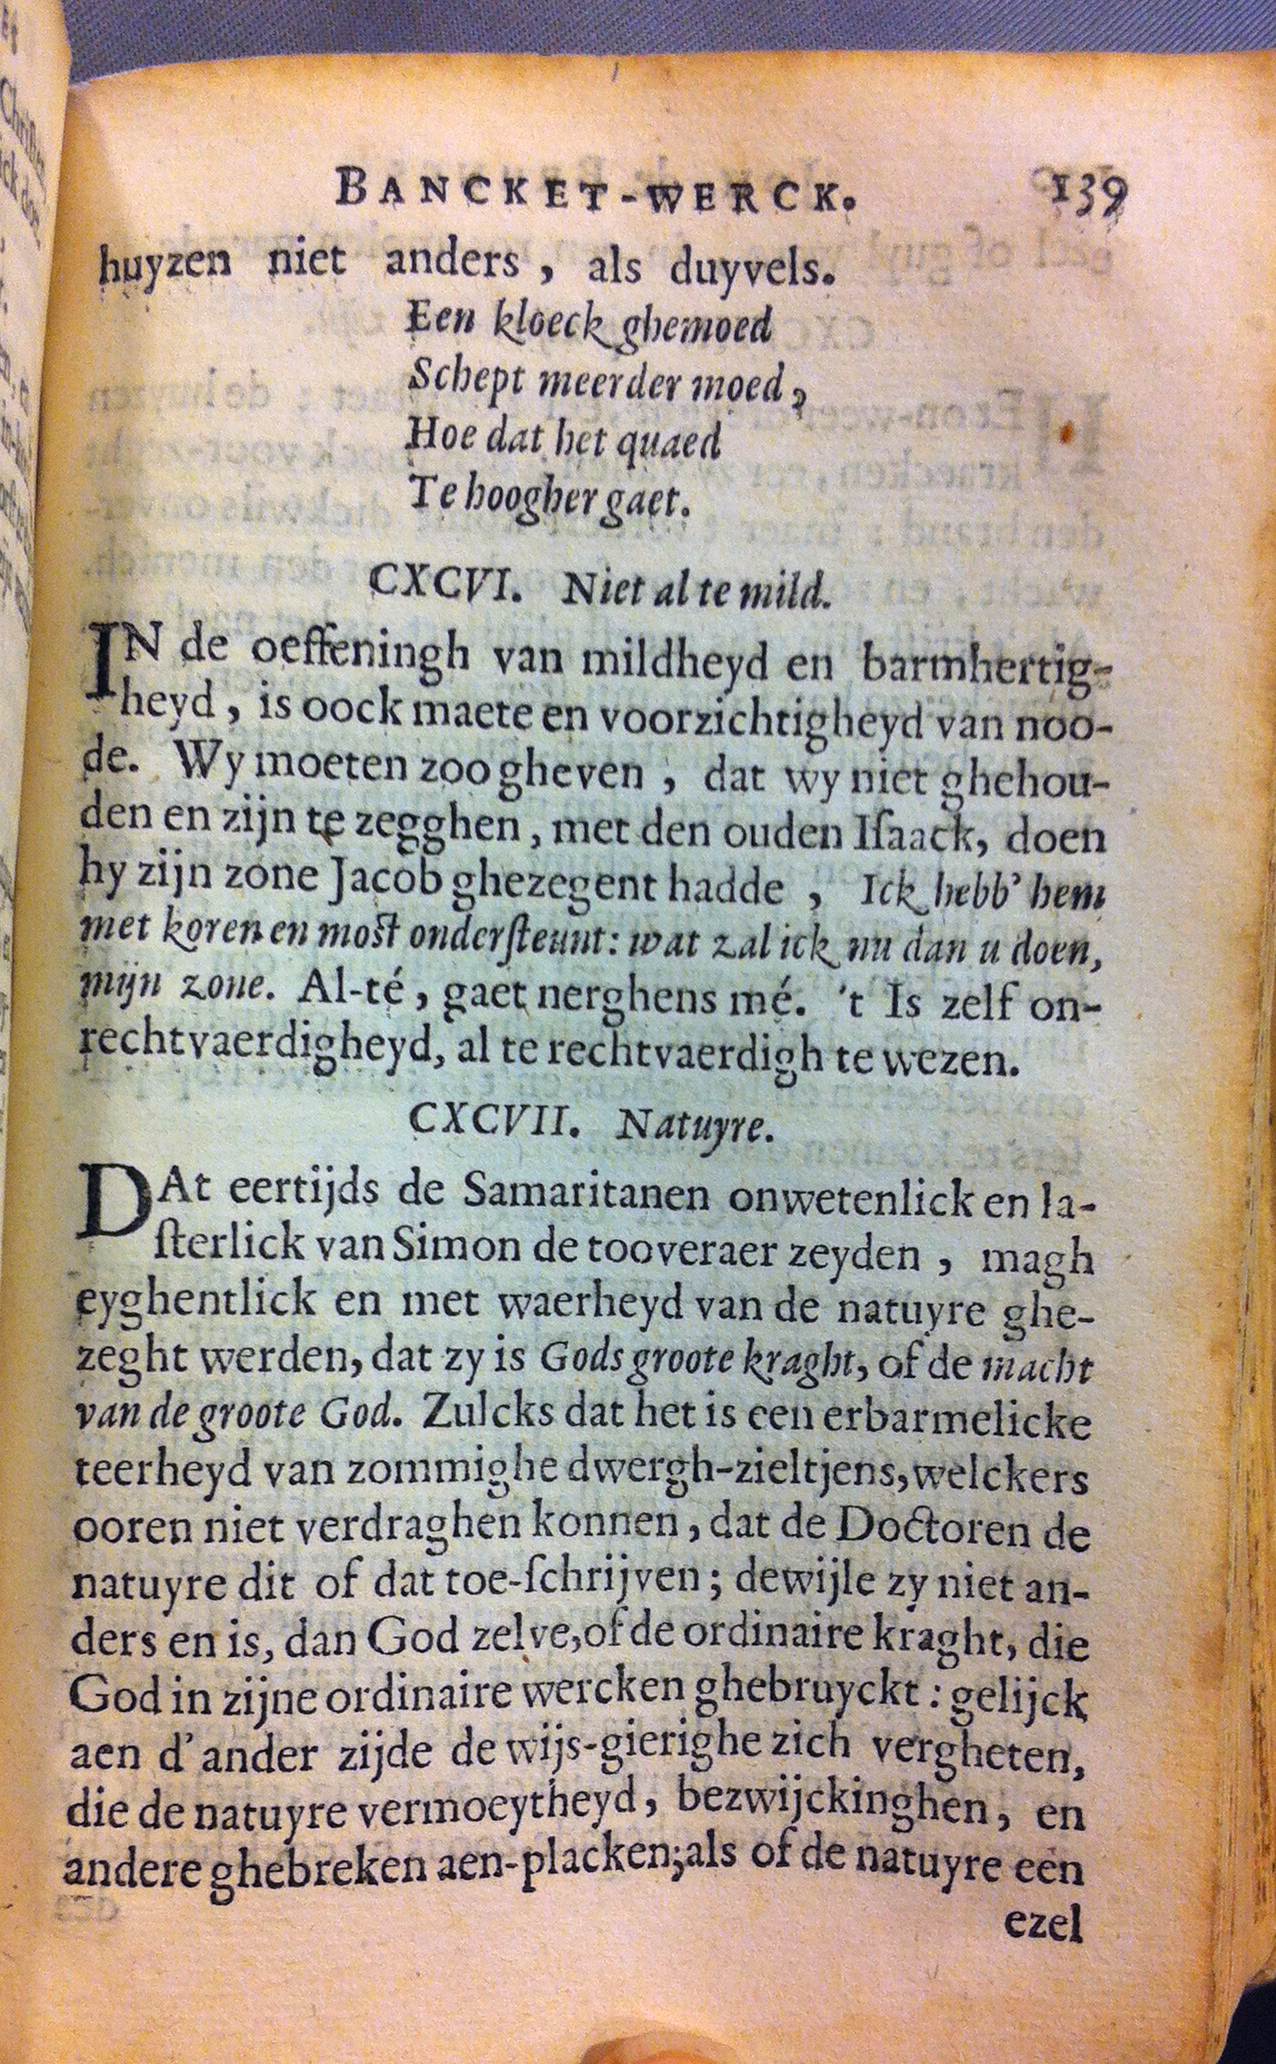 BANCKET-WERCK. 139
huyzen niet anders, als duyvels.
Een kloeck ghemoed
Schept meerder moed,
Hoe dat het quaed
Te hoogher gaet.
CXCVI. Niet al te mild.
IN de oeffeningh van mildheyd en barmhertig-
heyd, is oock maete en voorzichtigheyd van noo-
de. Wy moeten zoo gheven, dat wy niet ghehou-
den en zijn te zegghen, met den ouden Iſaack, doen
hy zijn zone Jacob ghezegent hadde, Ick hebb' hem
met koren en most onderſteunt: wat zal ick nu dan u doen,
mijn zone. Al-té, gaet nerghens mé. 't Is zelf on-
rechtvaerdigheyd, al te rechtvaerdigh te wezen.
CXCVII. Natuyre.
DAt eertijds de Samaritanen onwetenlick en la-
ſterlick van Simon de tooveraer zeyden, magh
eyghentlick en met waerheyd van de natuyre ghe-
zeght werden, dat zy is Gods groote kraght, of de macht
van de groote God. Zulcks dat het is een erbarmelicke
teerheyd van zommighe dwergh-zieltjens, welckers
ooren niet verdraghen konnen, dat de Doctoren de
natuyre dit of dat toe-ſchrijven; dewijle zy niet an-
ders en is, dan God zelve, of de ordinaire kraght, die
God in zijne ordinaire wercken ghebruyckt: gelijck
aen d'ander zijde de wijs-gierighe zich vergheten,
die de natuyre vermoeytheyd, bezwijckinghen, en
andere ghebreken aen-placken; als of de natuyre een
ezel